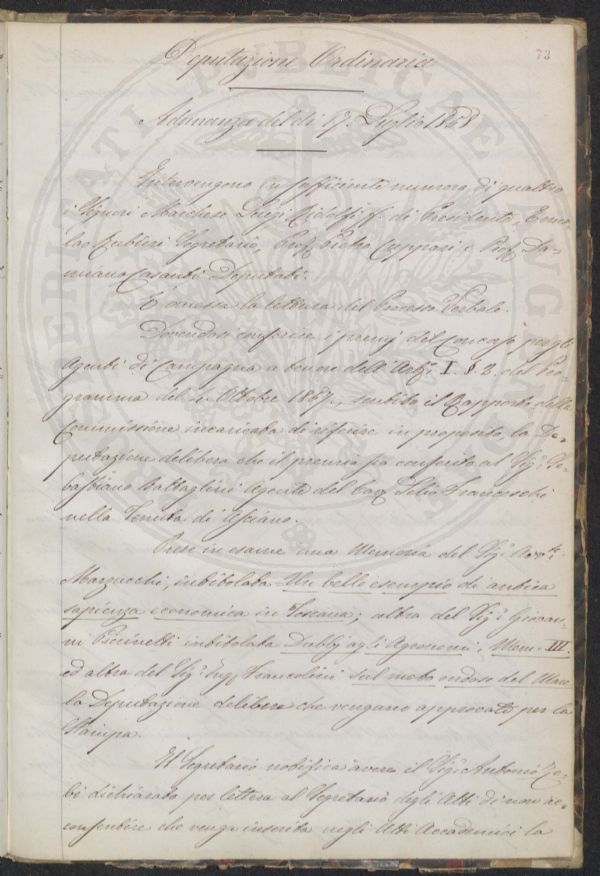 73
Deputazione Ordinaria
Adunanza del dì 17. Luglio 1868
Intervengono in sufficiente numero di quattro
i Signori Marchese Luigi Ridolfi ff. di Presidente, Ermo-
lao Rubieri Segretario, Prof. Pietro Cuppari e Prof. Da-
miano Casanti Deputati.
È omessa la lettura del Processo Verbale.
Dovendosi conferire i premj del Concorso pegli
Agenti di Campagna a tenore dell'Art. I. § 2. del Pro-
gramma del 4. Ottobre 1867., sentito il Rapporto della
Commissione incaricata di riferire in proposito, la De-
putazione delibera che il premio sia conferito al Sig.r Se-
bastiano Battaglini Agente del Cav. Lelio Franceschi
nella Tenuta di Asciano.
Prese in esame una Memoria del Sig.r Avv.to
Marzucchi, intitolata Un bello esempio di antica
sapienza economica in Toscana; altra del Sig.r Giovan-
ni Piccinelli intitolata Dubbj agli Agronomi, Mem. III.
ed altra del Sig.r Ing. Francolini Sul moto ondoso del Mare
la Deputazione delibera che vengano approvate per la
Stampa.
Il Segretario notifica avere il Sig.r Antonio Zo-
bi dichiarato per lettera al Segretario degli Atti di non ac-
consentire che venga inserita negli Atti Accademici la